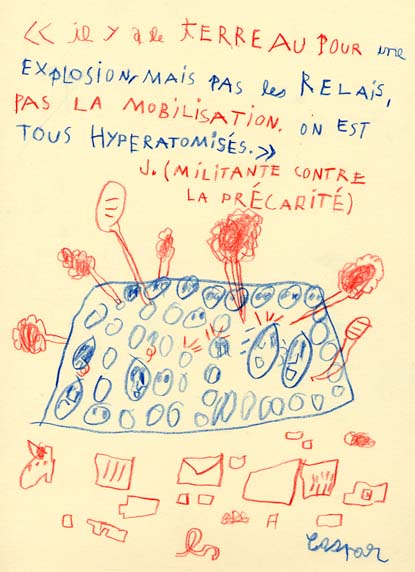 « il y a le TERREAU POUR une
EXPLOSION, MAIS PAS les RELAIS,
PAS LA MOBILISATION. ON EST
TOUS HYPERATOMISÉS. »
J. (MILITANTE CONTRE
LA PRÉCARITÉ)
A